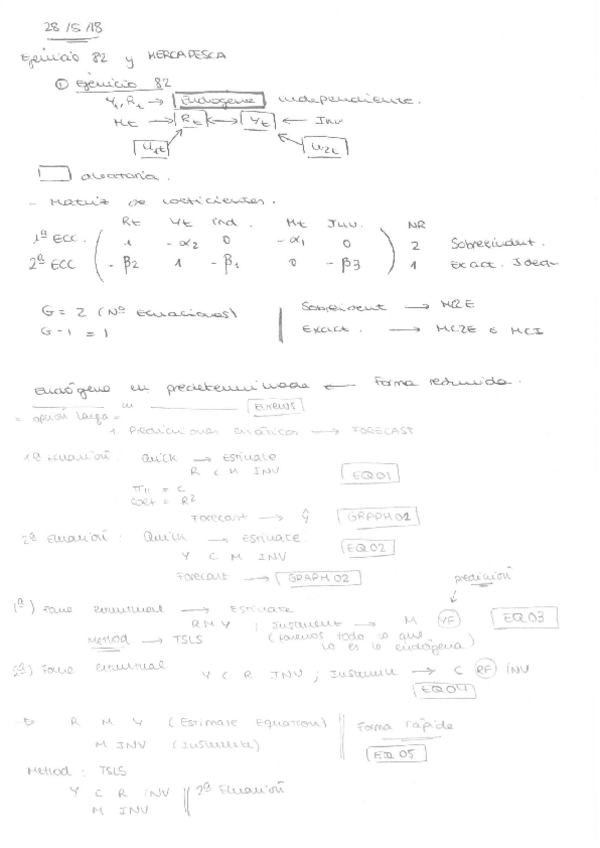 28/5/18
Ejercicio 82 y MERCAPESCA
① Ejercicio 82
Y₁, R₁ → Endógena independiente.
Mt → Rt ↔ Yt ← INV
U1t U2t
aleatoria.
- Matriz de coeficientes.
Rt Yt ind. Mt Inv. NR
1ª ECC. 1 -α₂ 0 -α₁ 0 2 Sobreident.
2ª ECC -β₂ 1 -β₁ 0 -β₃ 1 Exact. Ident
G = 2 (Nº Ecuaciones) Sobreident → MC2E
G-1 = 1 Exact. → MC2E ó MCI
Endógena en predeterminada ← Forma reducida.
= opción larga = EVIEWS
1. Predicciones estáticas → FORECAST
1ª Ecuación: Quick → Estimate
R C M INV EQ01
π₁₁ = C
coef = R²
Forecast → ŷ GRAPH 01
2ª Ecuación: Quick → Estimate
Y C M INV EQ02
Forecast → GRAPH 02
predicción
1ª) Forma estructural → Estimate
R M Y ; Instrument → M YF EQ03
Method → TSLS (ponemos todo lo que
no es la endógena)
2ª) Forma estructural Y C R INV ; Instrument → C RF INV
EQ04
R M Y (Estimate Equation) Forma rápida
M INV (Instrument) EQ 05
Method: TSLS
Y C R INV 2ª Ecuación
M INV